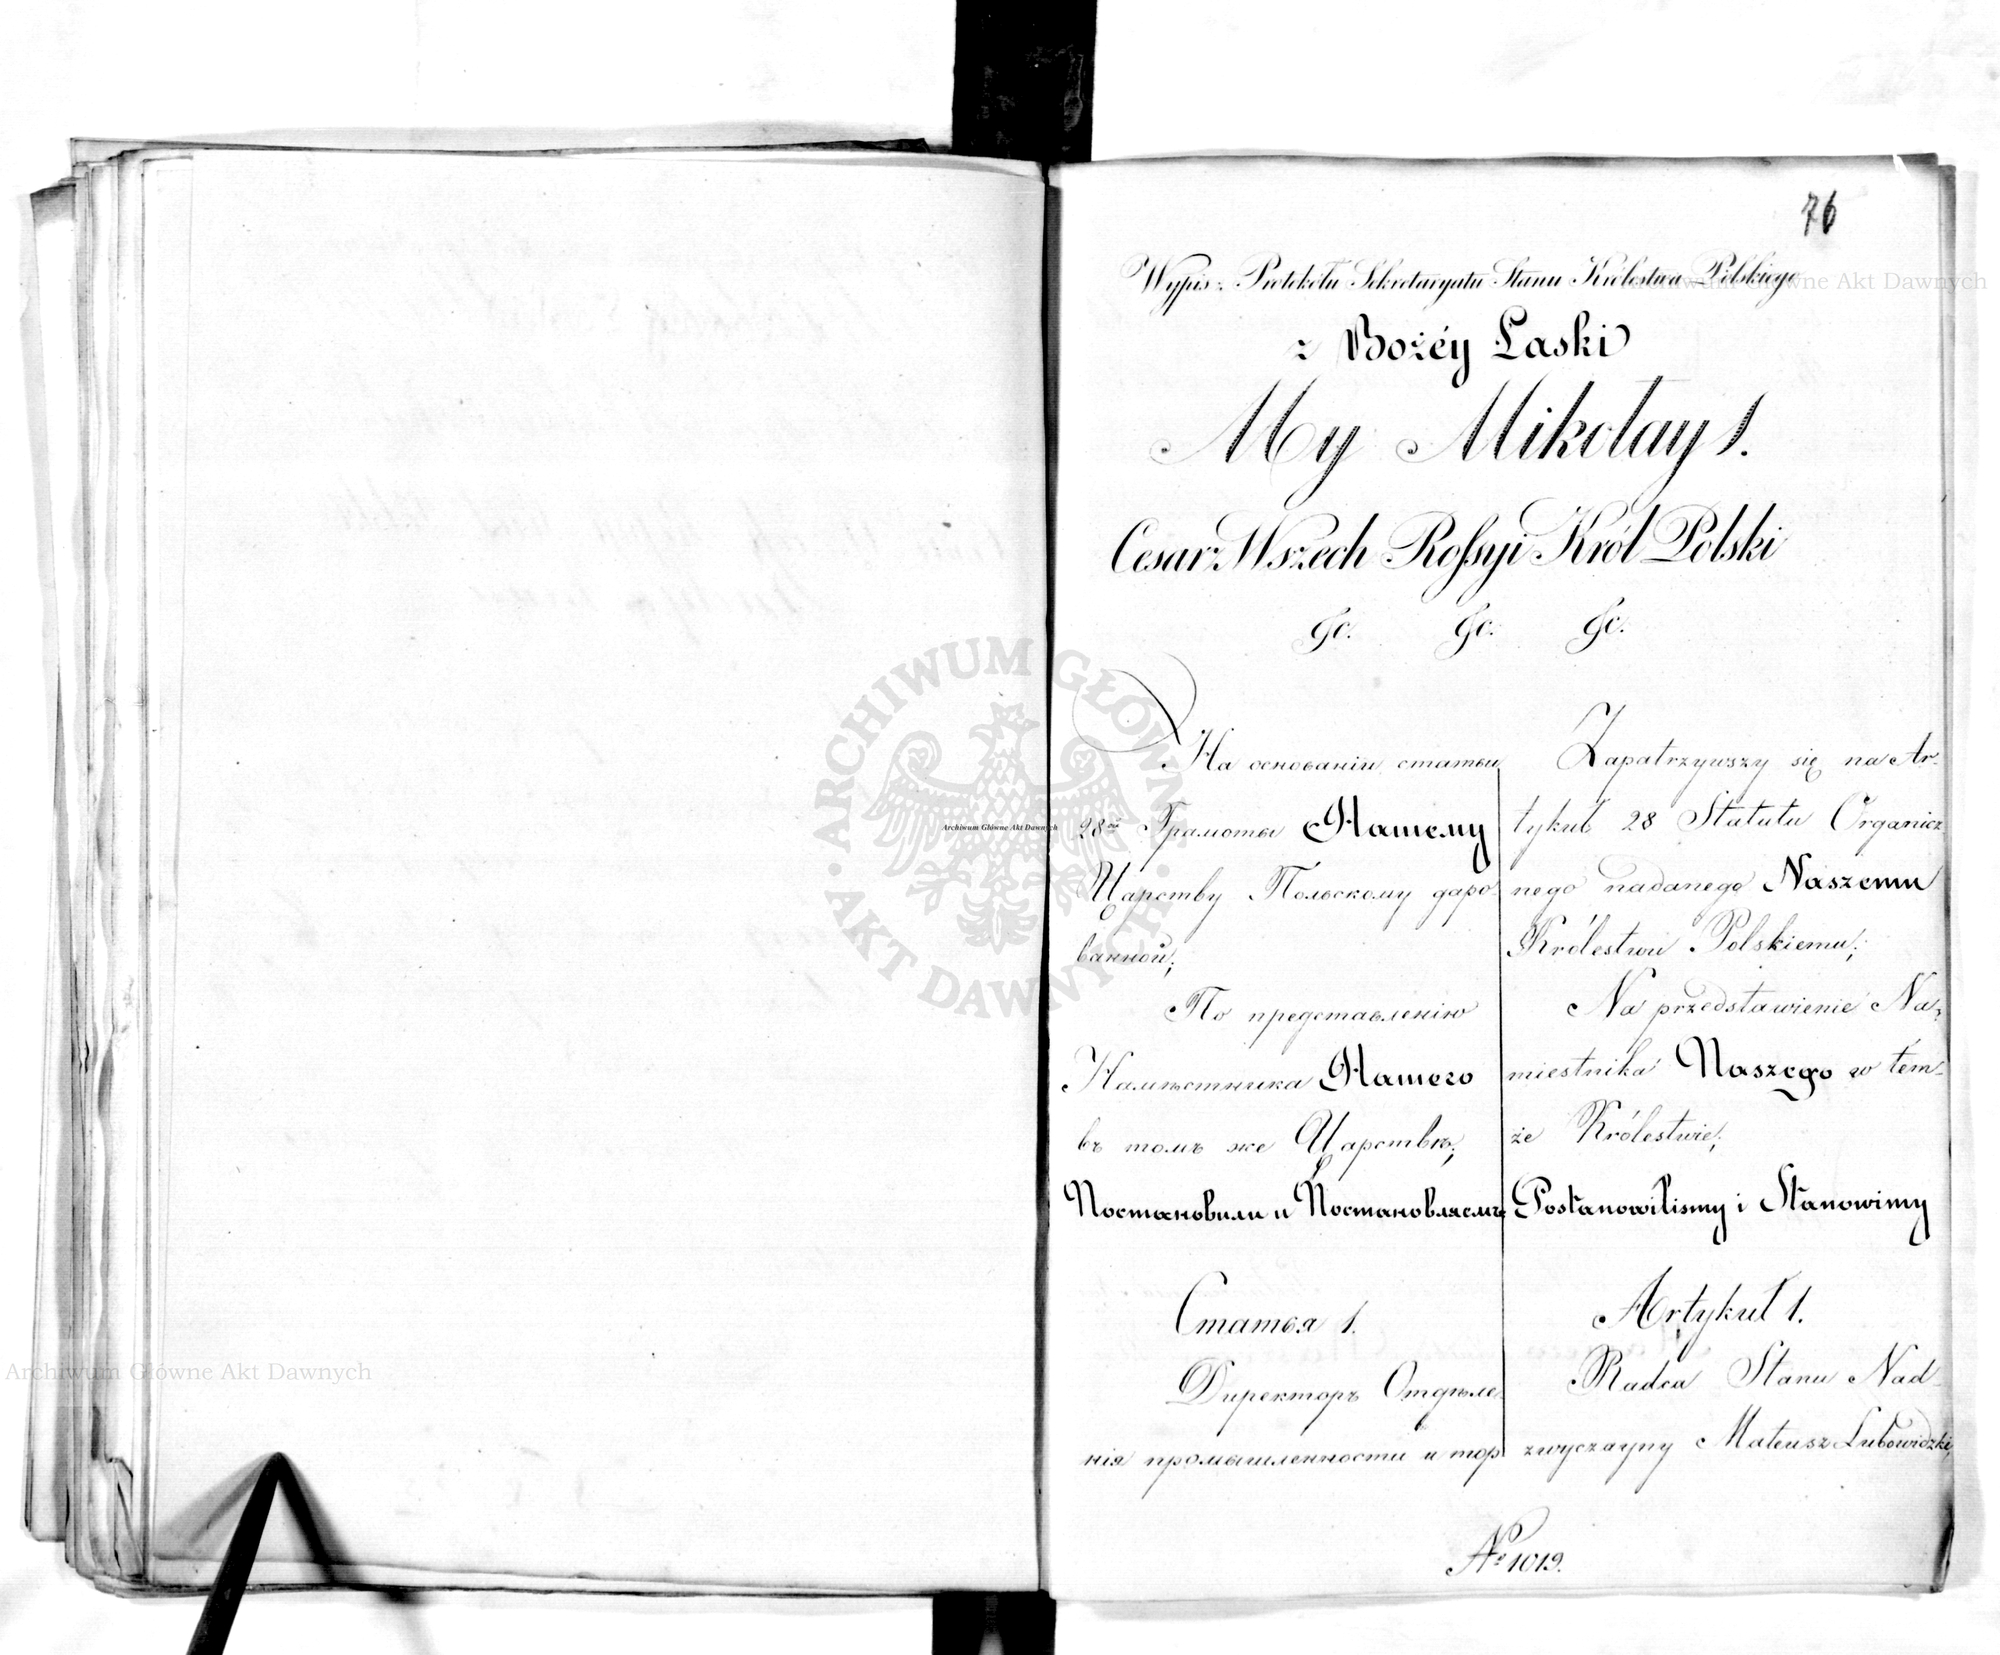 76
Wypis z Protokółu Sekretaryatu Stanu Królestwa Polskiego
z Bożéy Łaski
My Mikołay 1.
Cesarz Wszech Rossyi Król Polski
&c. &c. &c.
На основаніи статьи
28ой Грамоты Нашему
Царству Польскому даро-
ванной;
По представленію
Намѣстника Нашего
въ томъ же Царствѣ;
Постановили и Постановляемъ
Статья 1.
Директоръ Отдѣле-
нія промышленности и тор
Zapatrzywszy się na Ar-
tykuł 28 Statutu Organicz
nego nadanego Naszemu
Królestwu Polskiemu;
Na przedstawienie Na-
miestnika Naszego w tém-
że Królestwie;
Postanowiliśmy i Stanowimy
Artykuł 1.
Radca Stanu Nad-
zwyczayny Mateusz Lubowidzki,
№ 1019.
Archiwum Główne Akt Dawnych
Archiwum Główne Akt Dawnych
Archiwum Główne Akt Dawnych
ARCHIWUM GŁÓWNE AKT DAWNYCH